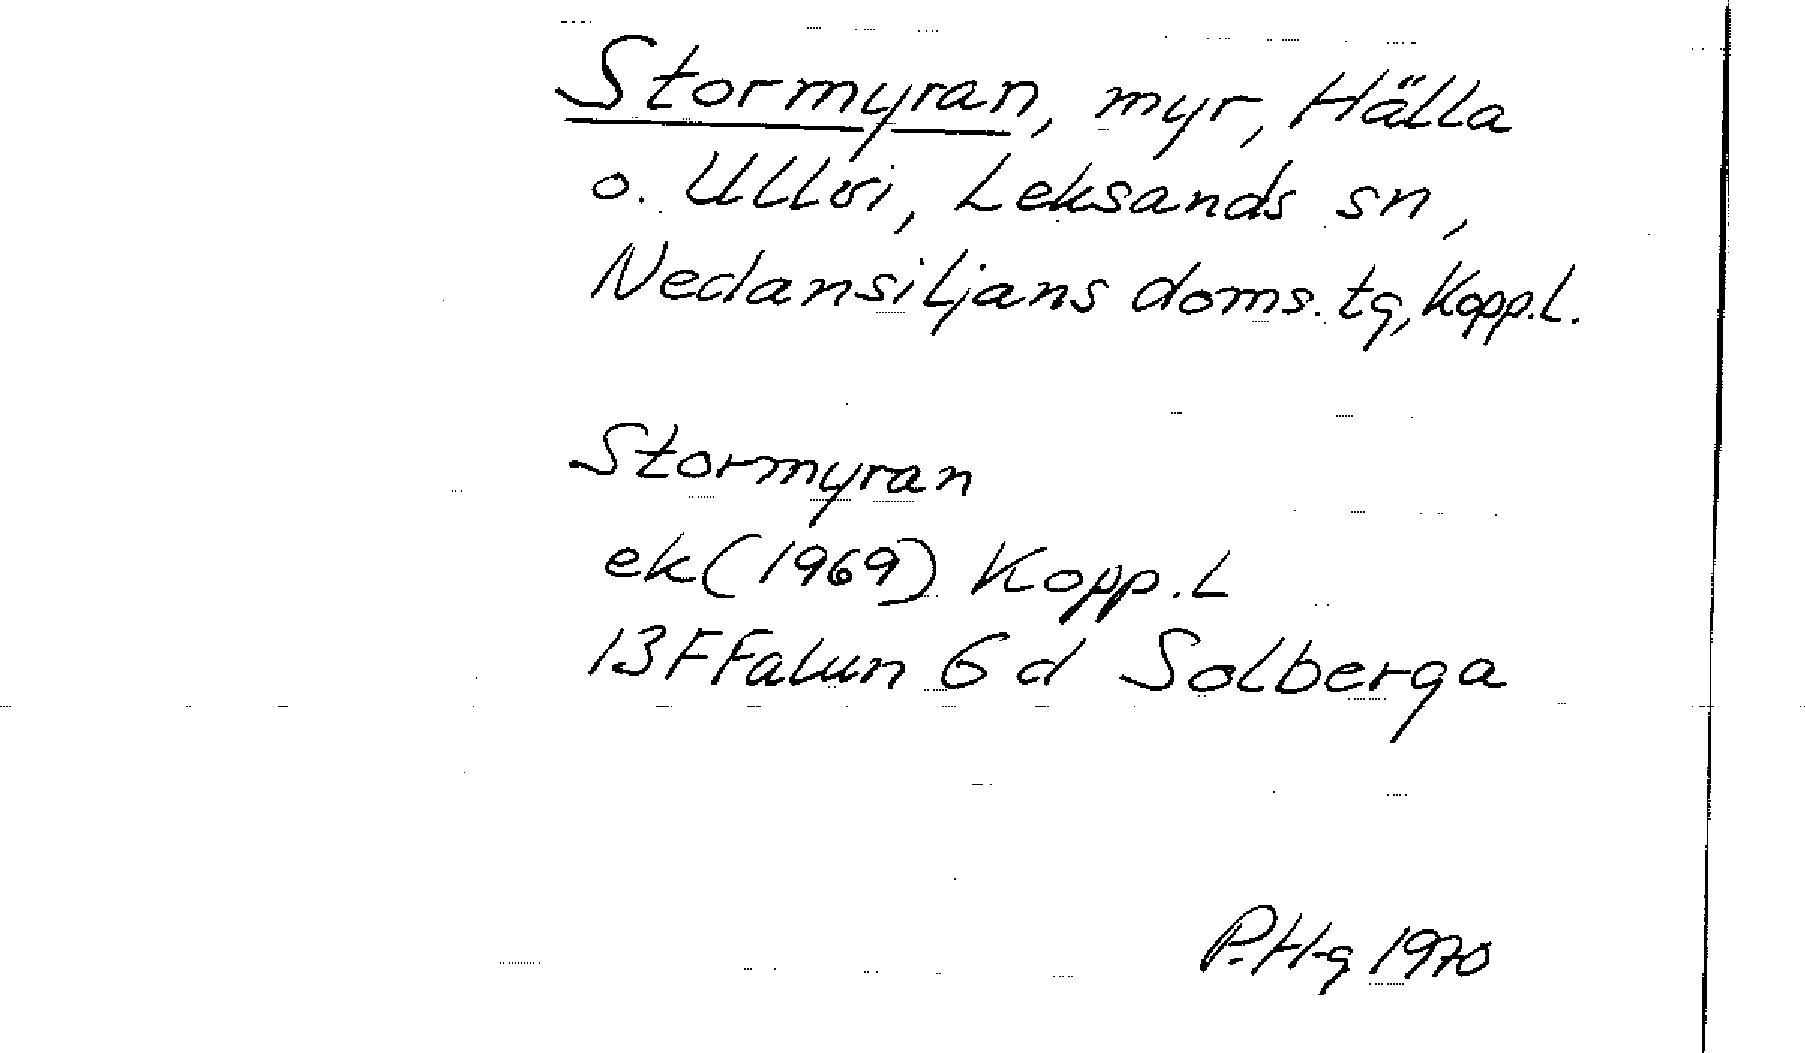 Stormyran, myr, Hälla
o. Ullvi, Leksands sn,
Nedansiljans doms. tg, Kopp.L.
Stormyran
ek (1969) Kopp.L
13F Falun 6 d Solberga
P.Hg 1970